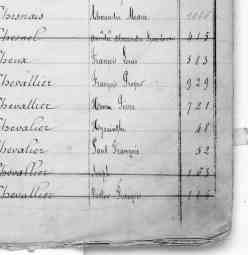 Chesnais Alexandre Marie
Chesnel 415
Cheux Francis Louis 513
Chevallier François Prosper 929
Chevallier Pierre 721
Chevalier Hyacinthe 48
Chevalier Paul François 52
Chevallier Joseph 153
Chevalier Victor François